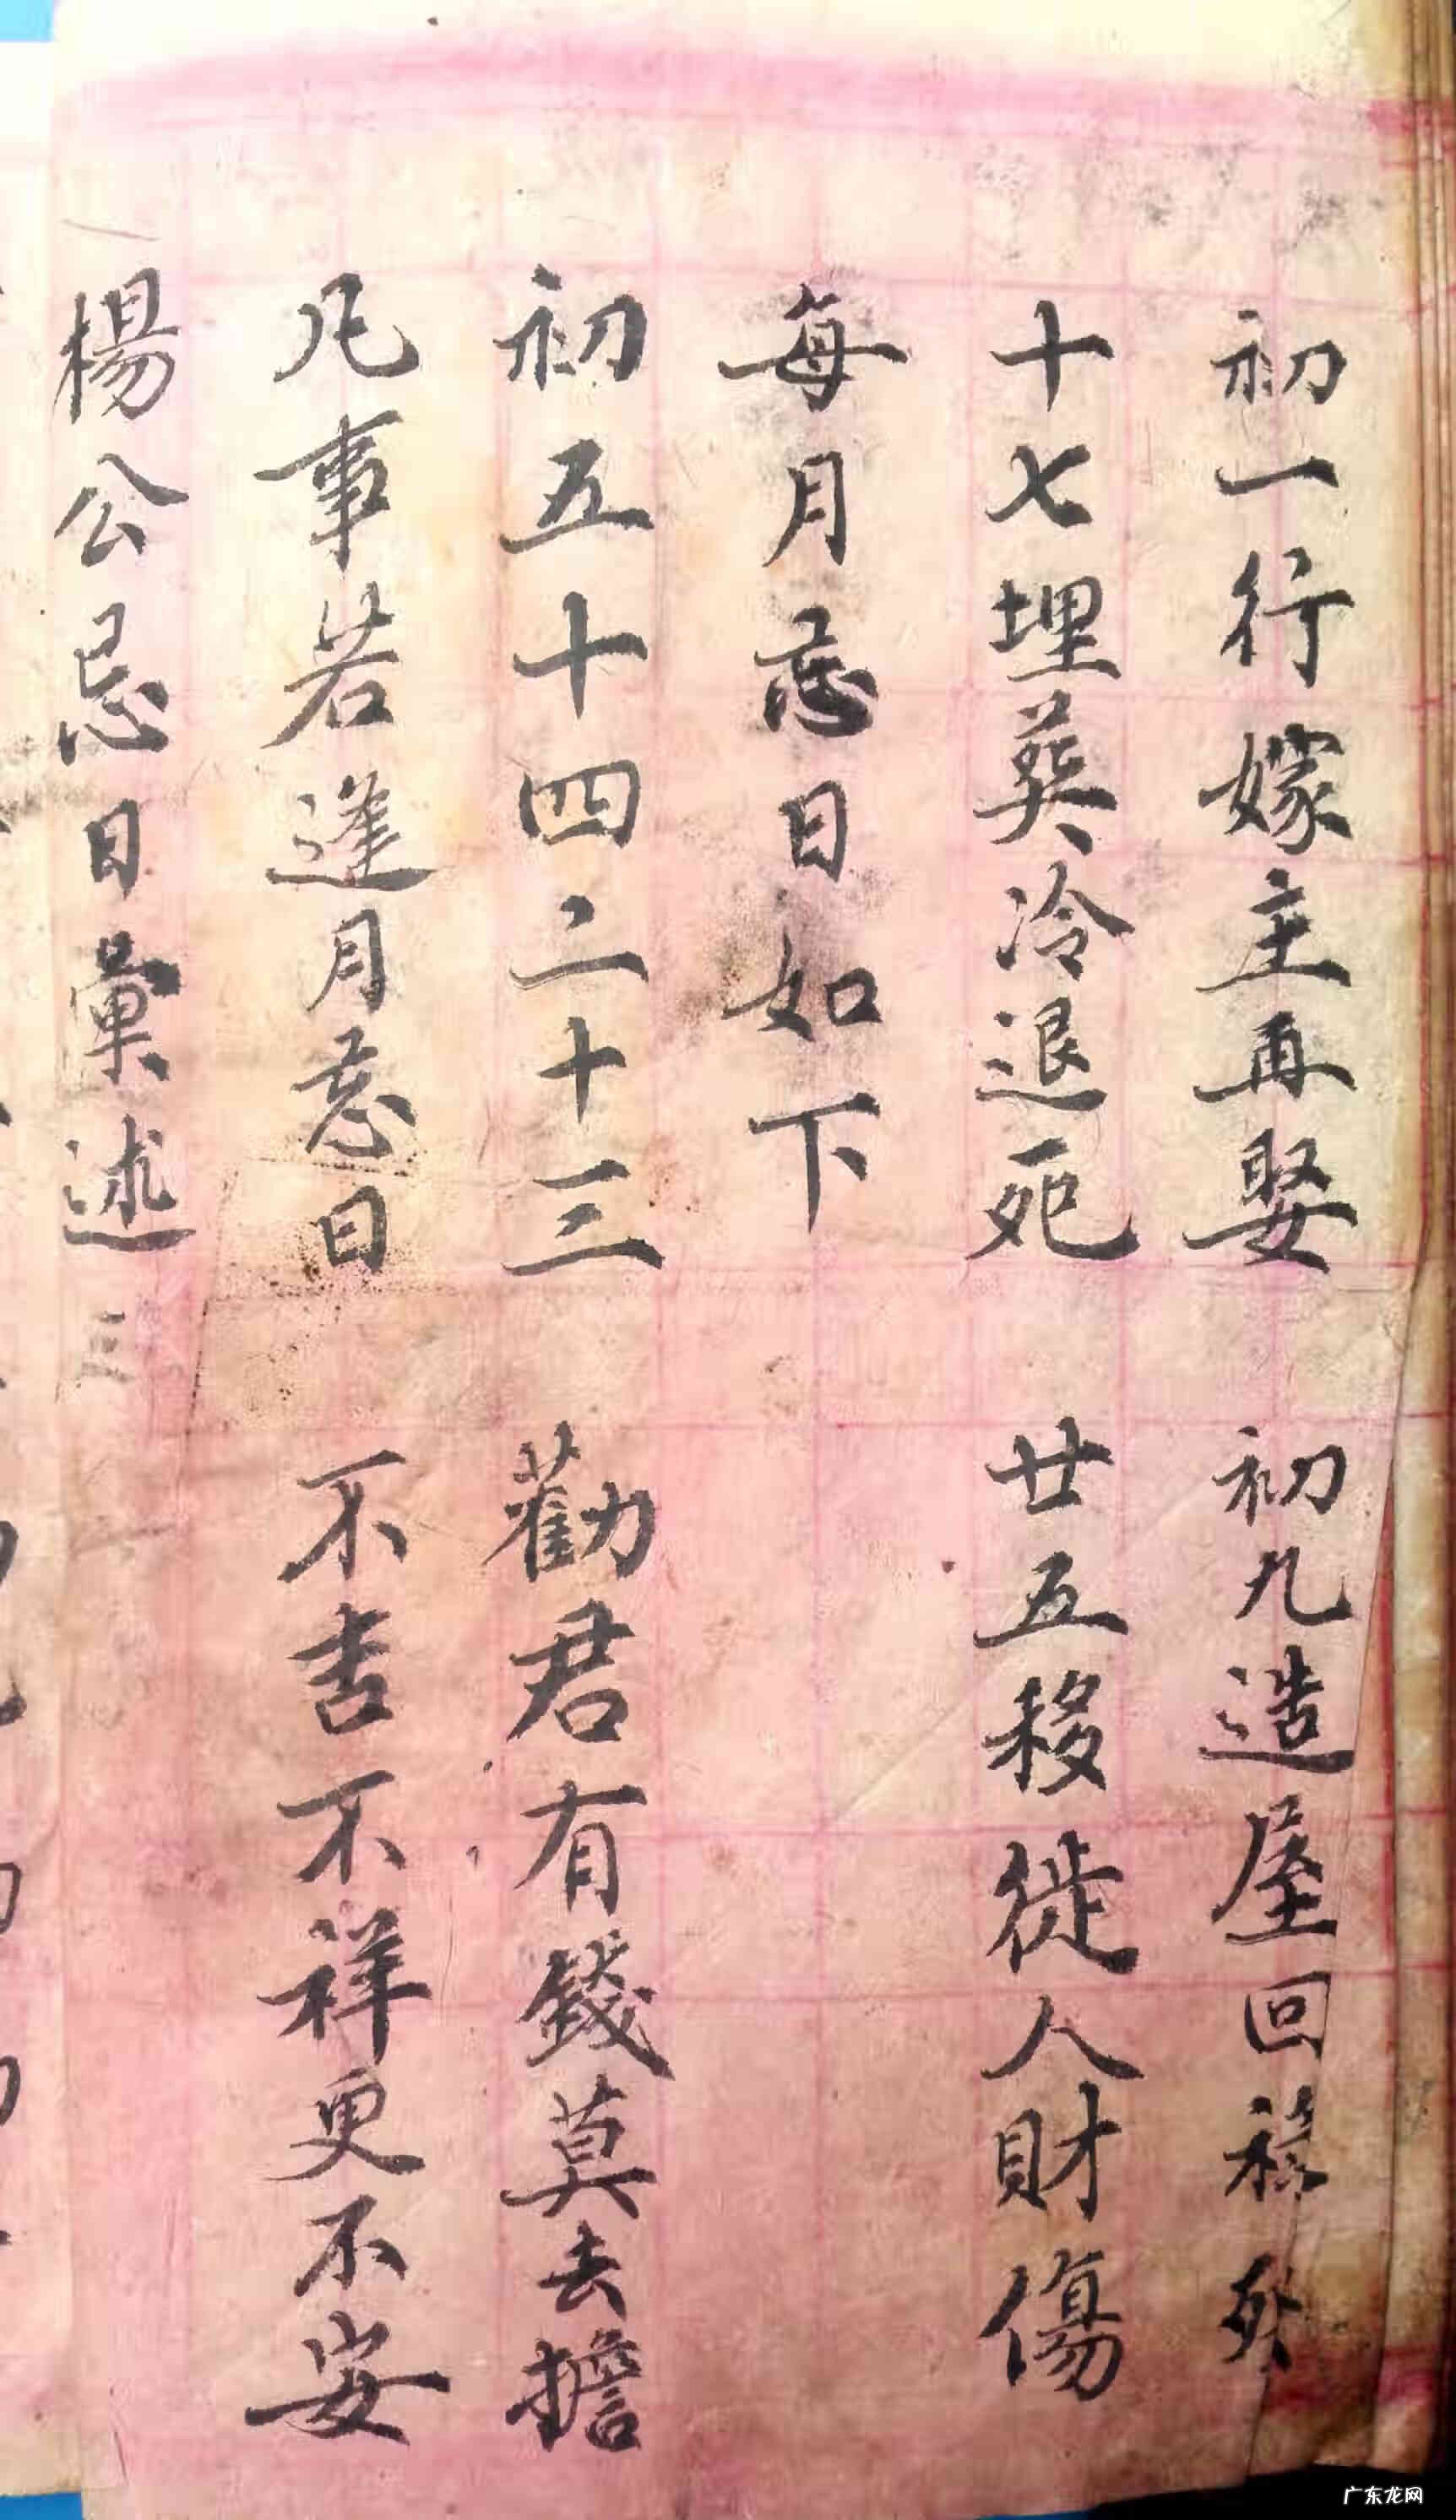 初一行嫁主再娶　初九造屋回祿殃
十七埋葬冷退死　廿五移徙人財傷
每月忌日如下
初五十四二十三　勸君有錢莫去擔
凡事若逢月忌日　不吉不祥更不安
楊公忌日彙述
广东龙网